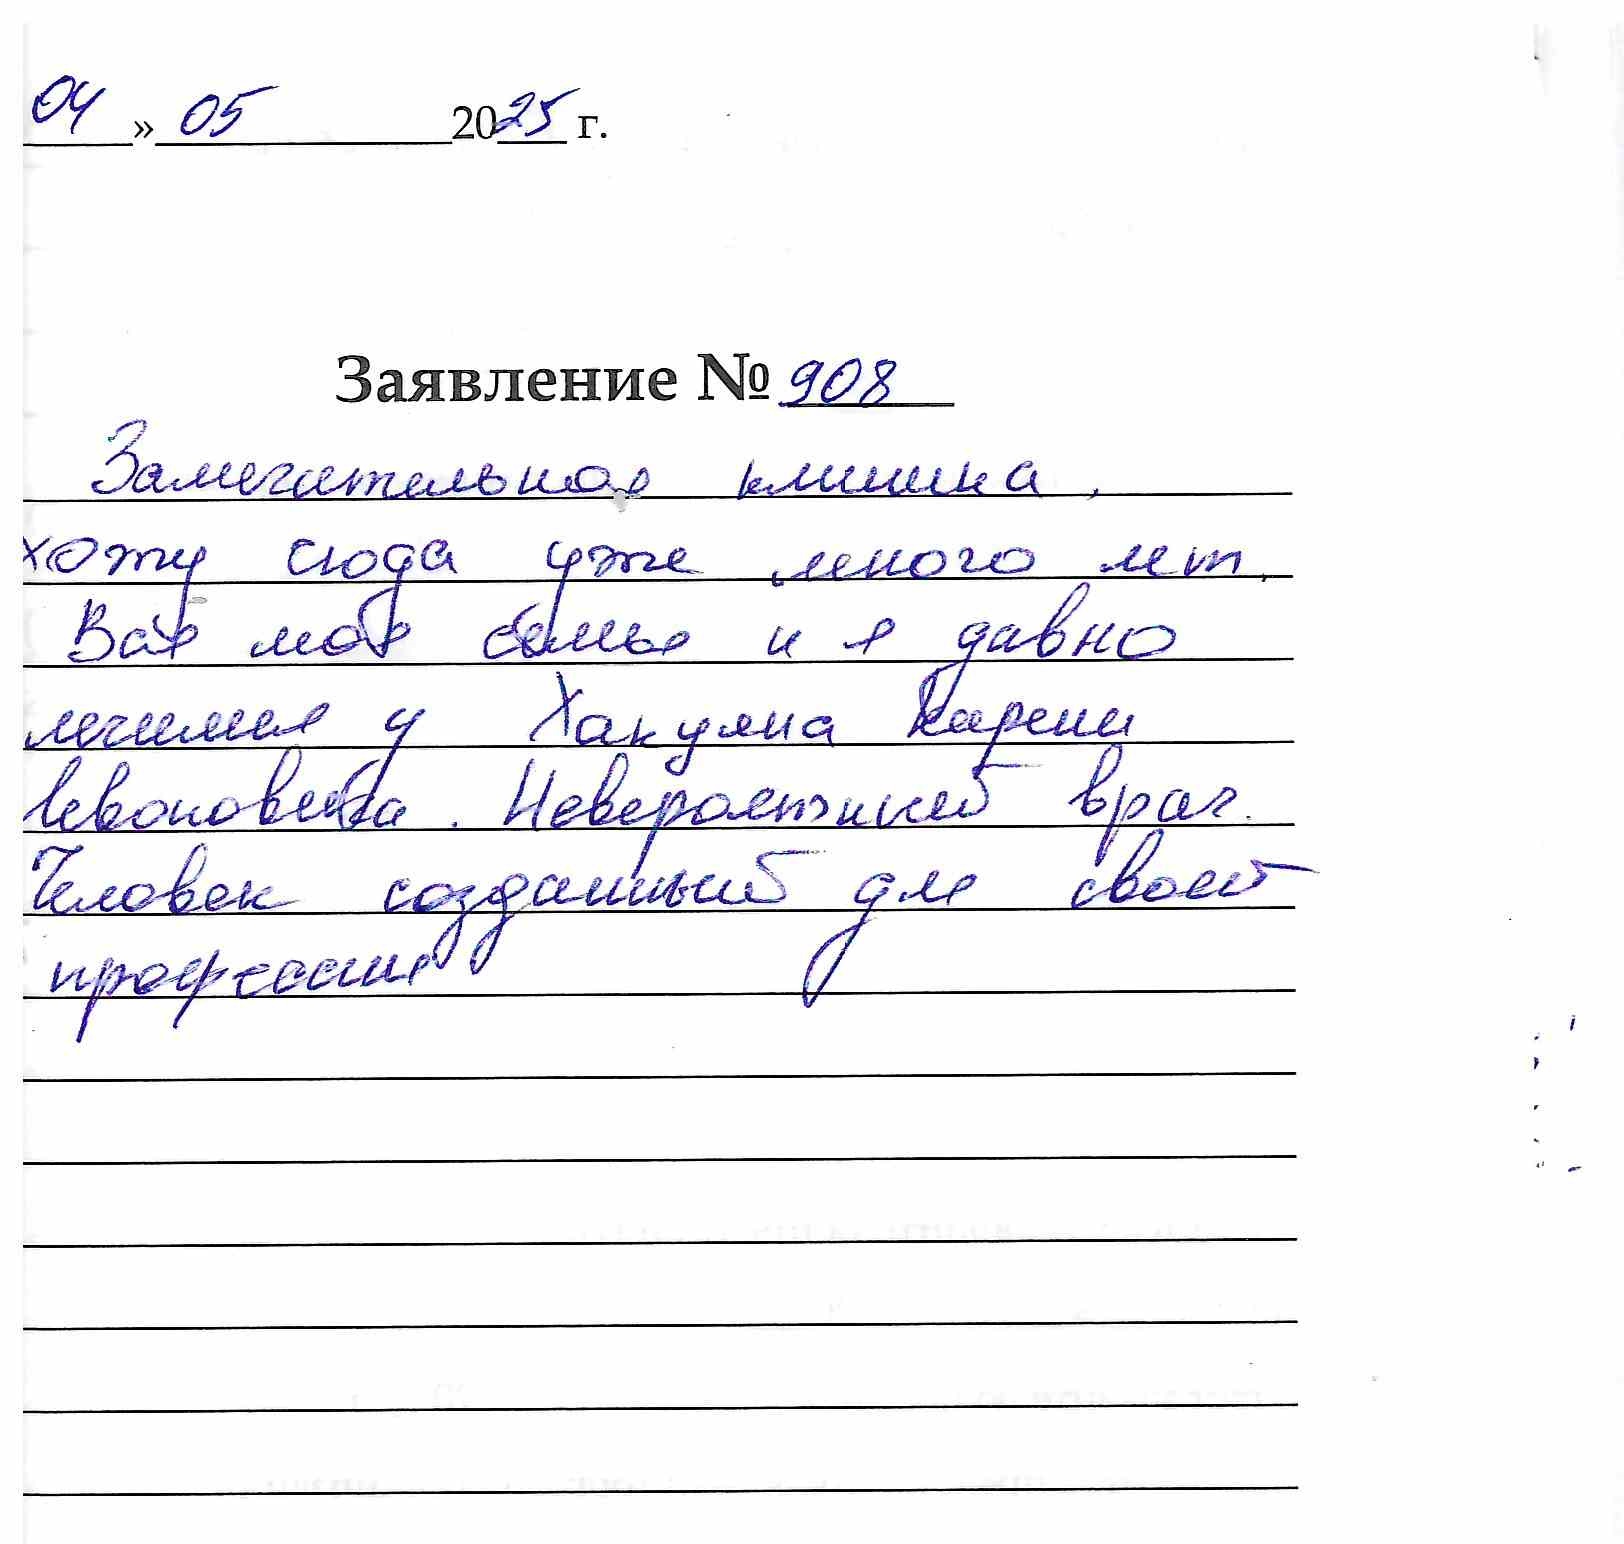 04 » 05 2025 г.
Заявление № 908
Замечательная клиника,
хожу сюда уже много лет.
Вся моя семья и я давно
лечимся у Хакуляна Карена
Левоновича. Невероятный врач.
Человек созданный для своей
профессии